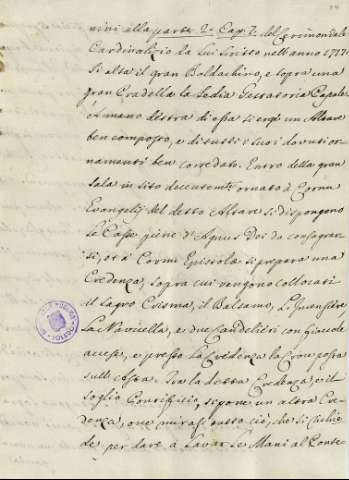 nini alla parte 2.ª Cap. 7. del Ceremoniale
Cardinalizio da Lui scritto nell'anno 1717.
Si alza il gran Baldachino, e sopra una
gran Predella la Sedia Gestatoria Papale
A mano destra di essa si ergé un Altare
ben composto, e di tutti i suoi dovuti or-
namenti ben corredato. Entro della gran
sala in sito decentemente ornato à Cornu
Evangelij del detto Altare si dispongono
le Casse piene d'Agnus Dei da consagrar-
si, ed à Cornu Epistolæ si prepara una
Credenza, sopra cui vengono collocati
il Sagro Crisma, il Balsamo, l'Incensiere,
la Navicella, e due Candelieri con fiaccole
accese, e presso la Credenza la Croce posta
sull'Asta. Tra la detta Credenza, e il
soglio Pontificio, si pone un altra Cre-
denza, ove mirasi tutto ciò, che si richie-
de per dare à lavar le Mani al Ponte-